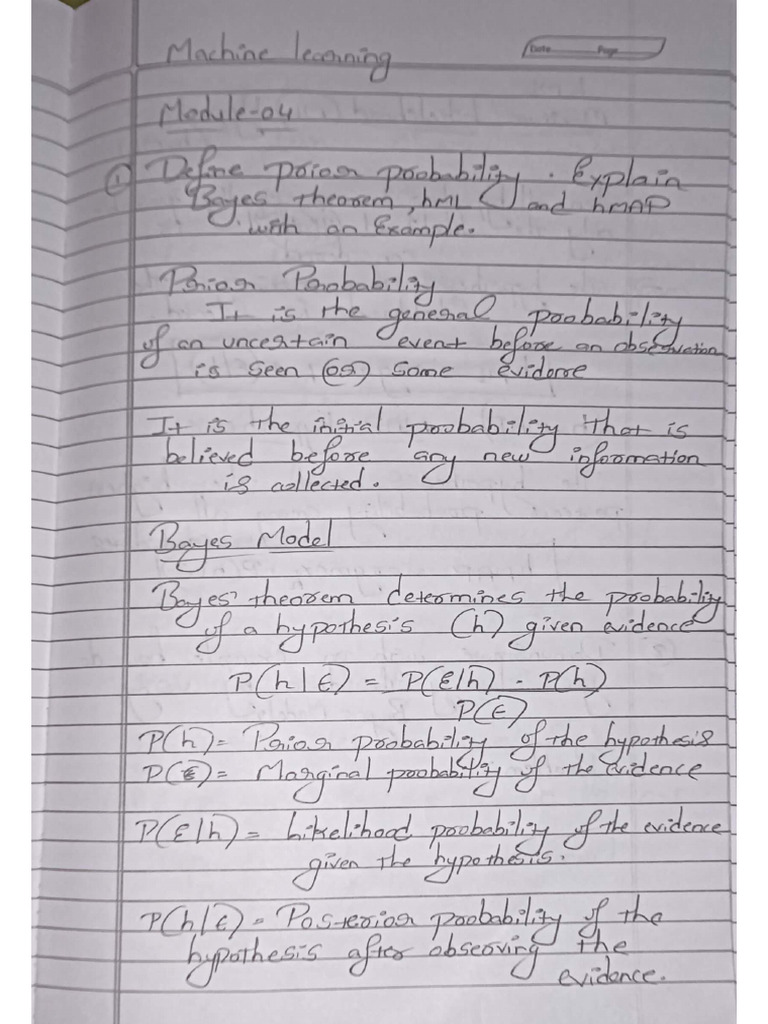 Machine learning
Date Page
Module-04
① Define prior probability. Explain
Bayes theorem, hML and hMAP
with an Example.
Prior Probability
It is the general probability
of an uncertain event before an observation
is seen (or) some evidence
It is the initial probability that is
believed before any new information
is collected.
Bayes Model
Bayes' theorem determines the probability
of a hypothesis (h) given evidence
P(h|E) = P(E|h) · P(h)
P(E)
P(h) = Prior probability of the hypothesis
P(E) = Marginal probability of the evidence
P(E|h) = Likelihood probability of the evidence
given the hypothesis.
P(h|E) = Posterior probability of the
hypothesis after observing the
evidence.